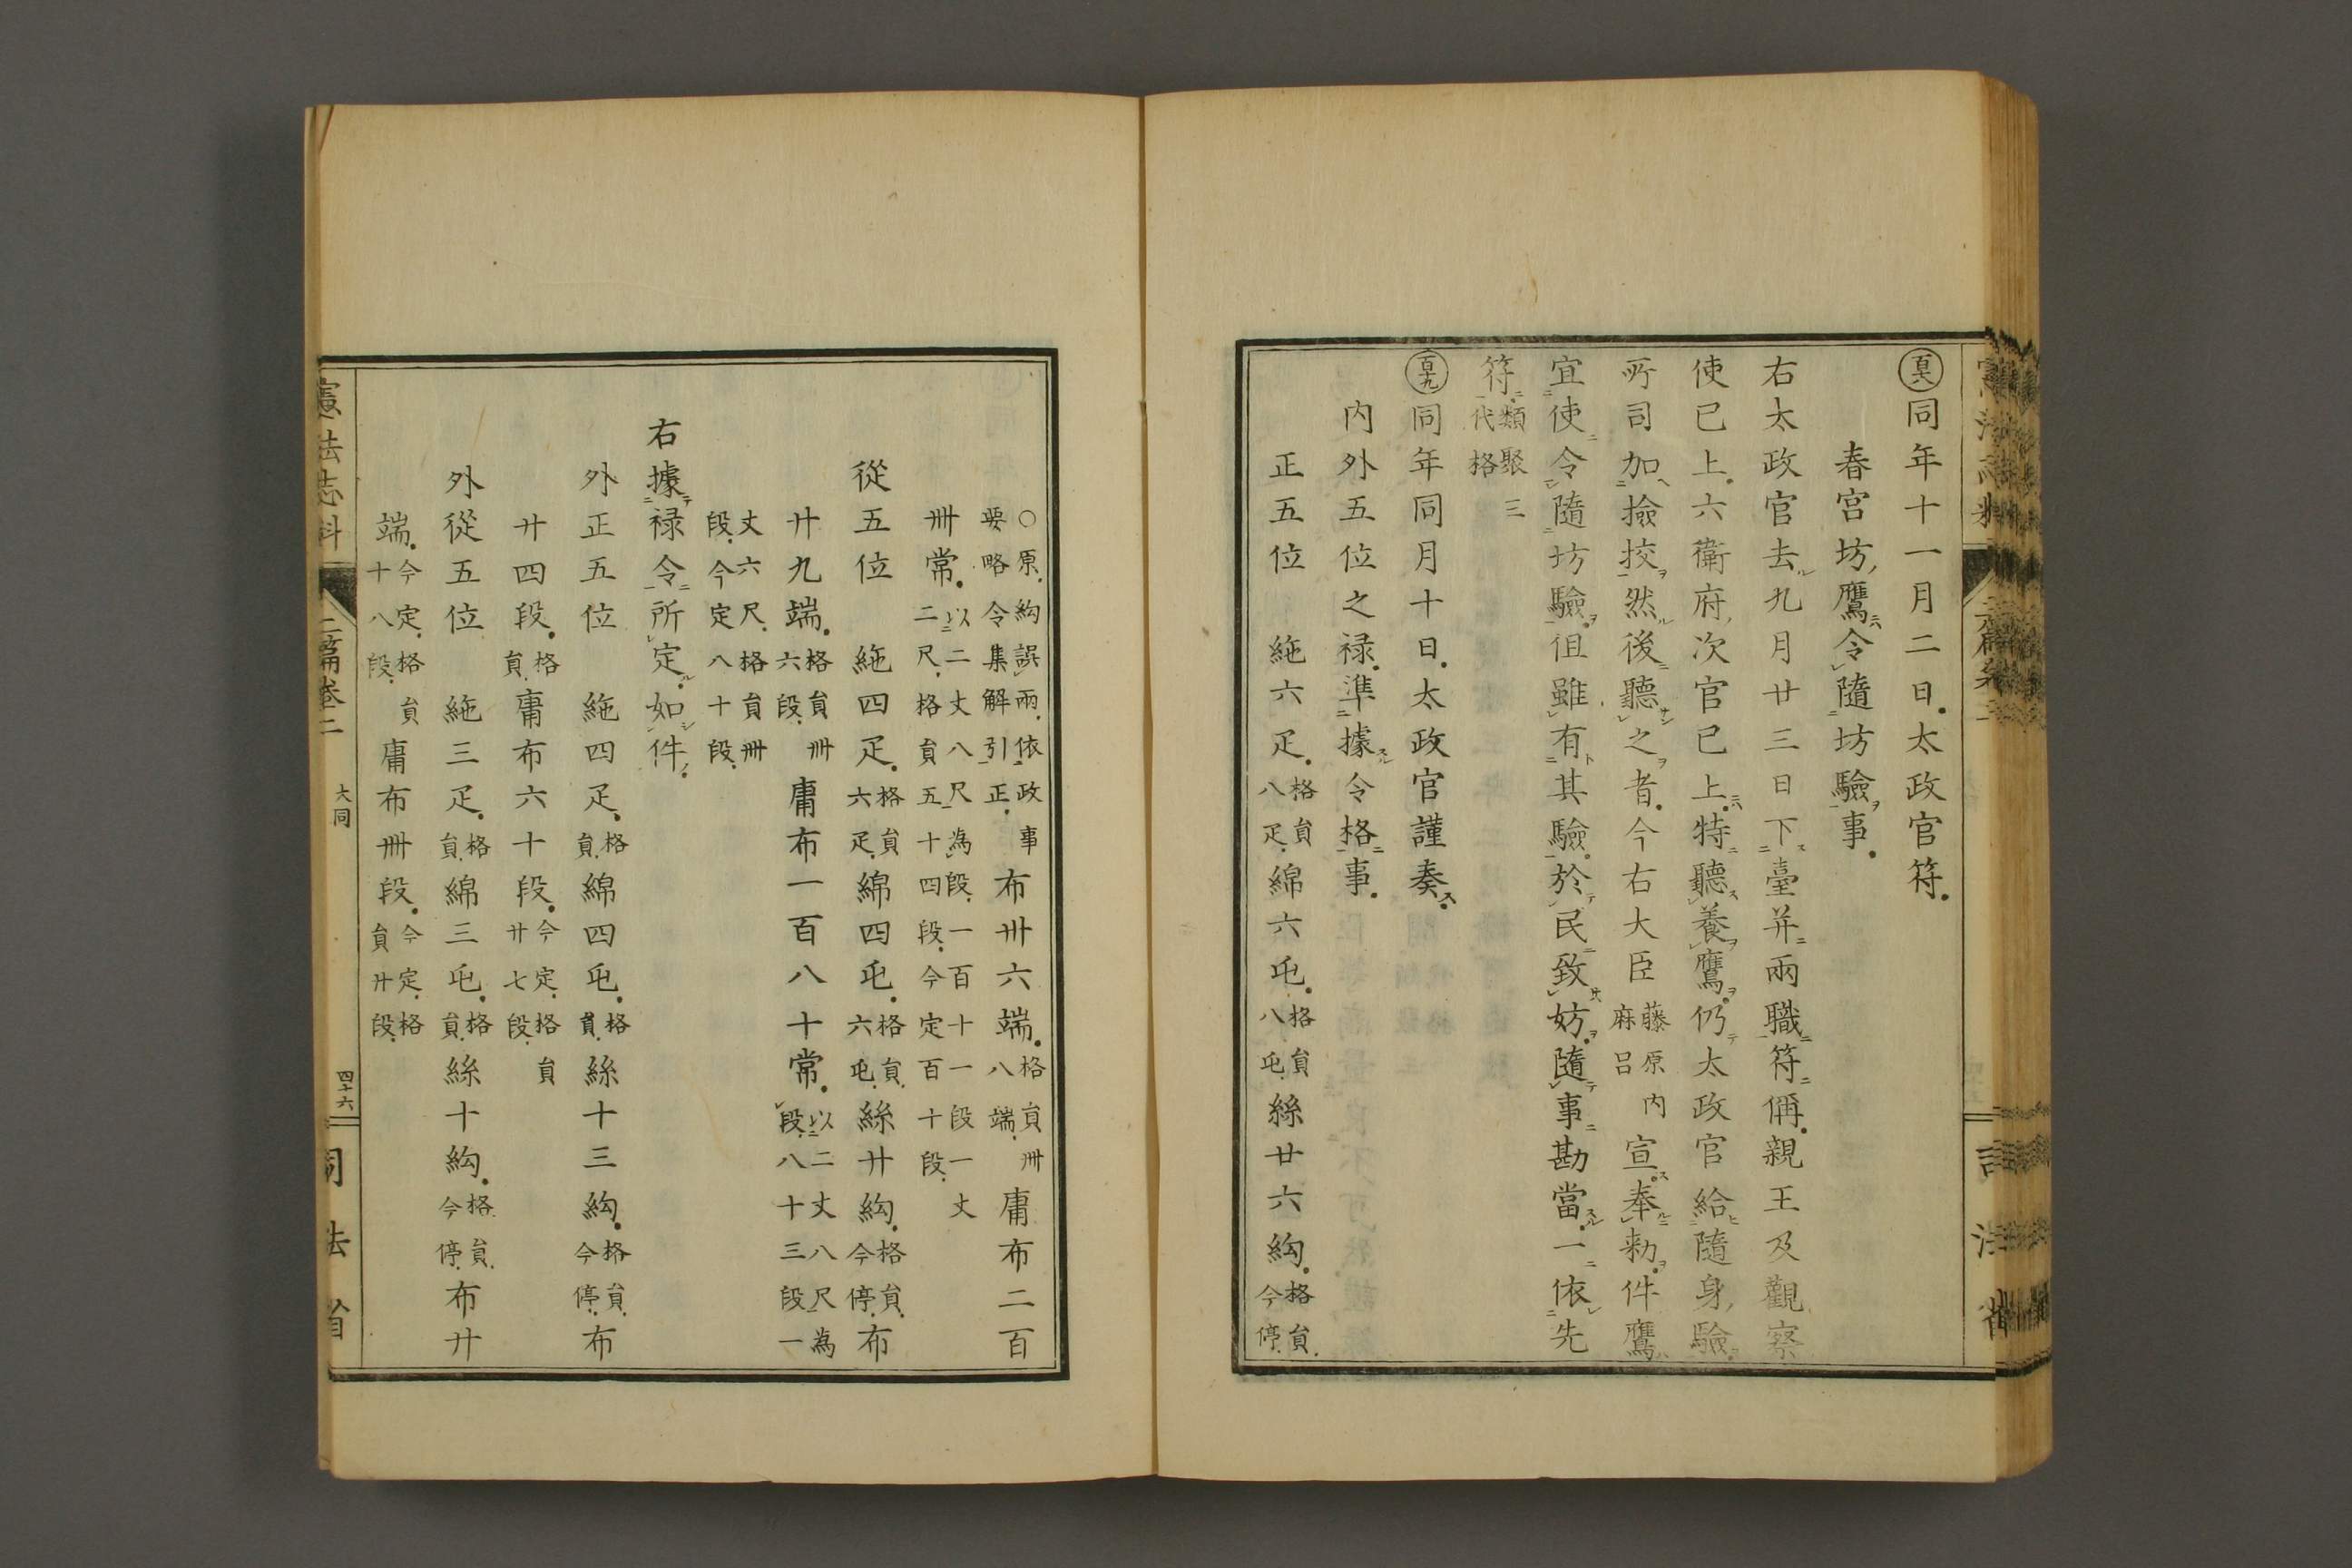 同年十一月二日太政官符
春宮坊鷹令隨坊驗事
右太政官去九月廿三日下臺并兩職符偁親王及觀察
使已上六衛府次官已上特聽養鷹仍太政官給隨身驗
所司加撿挍然後聽之者今右大臣藤原内麻呂宣奉勅件鷹
宜使令隨坊驗但雖有其驗於民致妨隨事勘當一依先
符類聚三代格
同年同月十日太政官謹奏
内外五位之禄準據令格事
正五位 絁六疋格員八疋綿六屯格員八屯絲廿六絇格員今停
○原絇誤兩依政事要略令集解引正布卅六端格員卌八端庸布二百
卌常以二丈八尺為段一百十一段一丈二尺格員五十四段今定百十段
從五位 絁四疋格員六疋綿四屯格員六屯絲廿絇格員今停布
廿九端格員卌六段庸布一百八十常以二丈八尺為段八十三段一
丈六尺格員卌段今定八十段
右據禄令所定如件
外正五位 絁四疋格員綿四屯格員絲十三絇格員今停布
廿四段格員庸布六十段今定格員廿七段
外從五位 絁三疋格員綿三屯格員絲十絇格員今停布廿
端今定格員十八段庸布卌段今定格員廿段
憲法志料
二篇卷二
大同
四十六
司法省